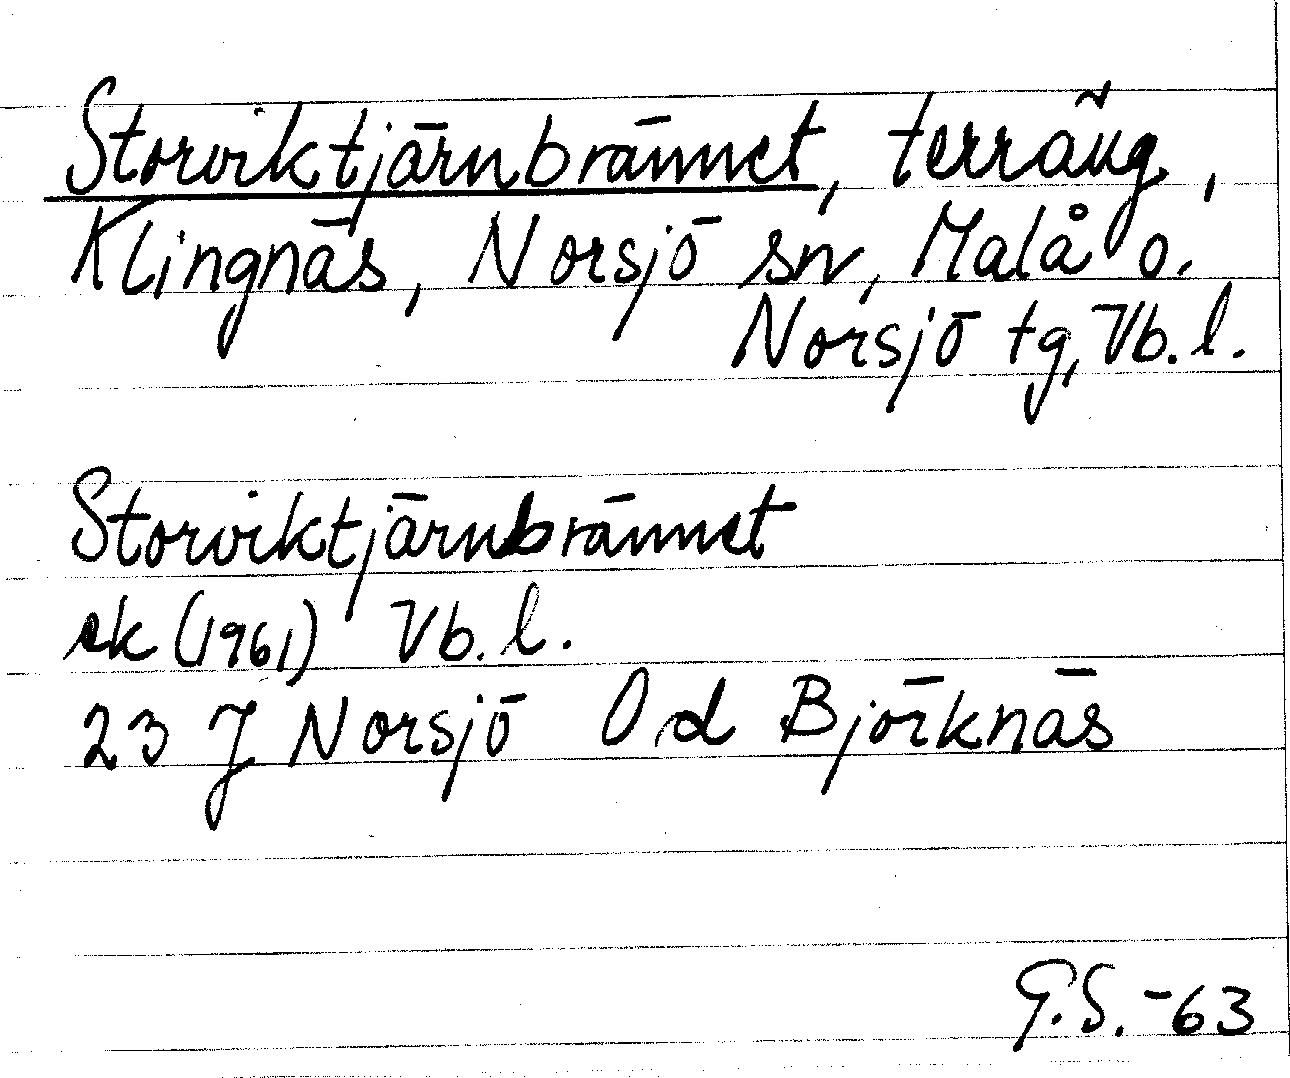 Storviktjärnbrännet, terräng,
Klingnäs, Norsjö sn, Malå o.
Norsjö tg, Vb. l.
Storviktjärnbrännet
ek (1961) Vb. l.
23 J Norsjö 0 d Björknäs
G.S. -63